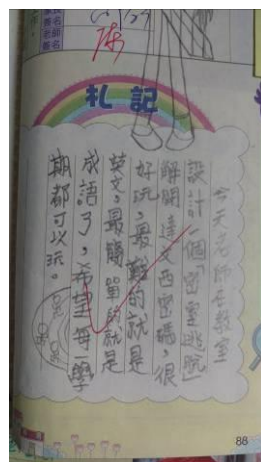 札記
今天老師在教室
設計一個「密室逃脫」
解開達文西密碼，很
好玩，最難的就是
英文，最簡單的就是
成語了，希望每一學
期都可以玩。
88